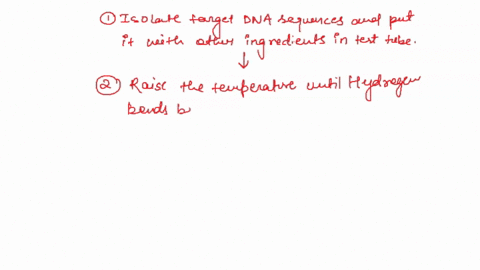 ① Isolate target DNA sequences and put
it with other ingredients in test tube.
↓
② Raise the temperature until Hydrogen
bonds b